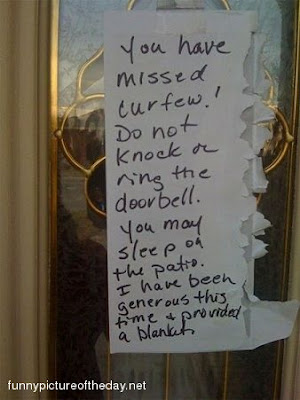 You have
missed
curfew!
Do not
knock or
ring the
doorbell.
You may
sleep on
the patio.
I have been
generous this
time & provided
a blanket.
funnypictureoftheday.net